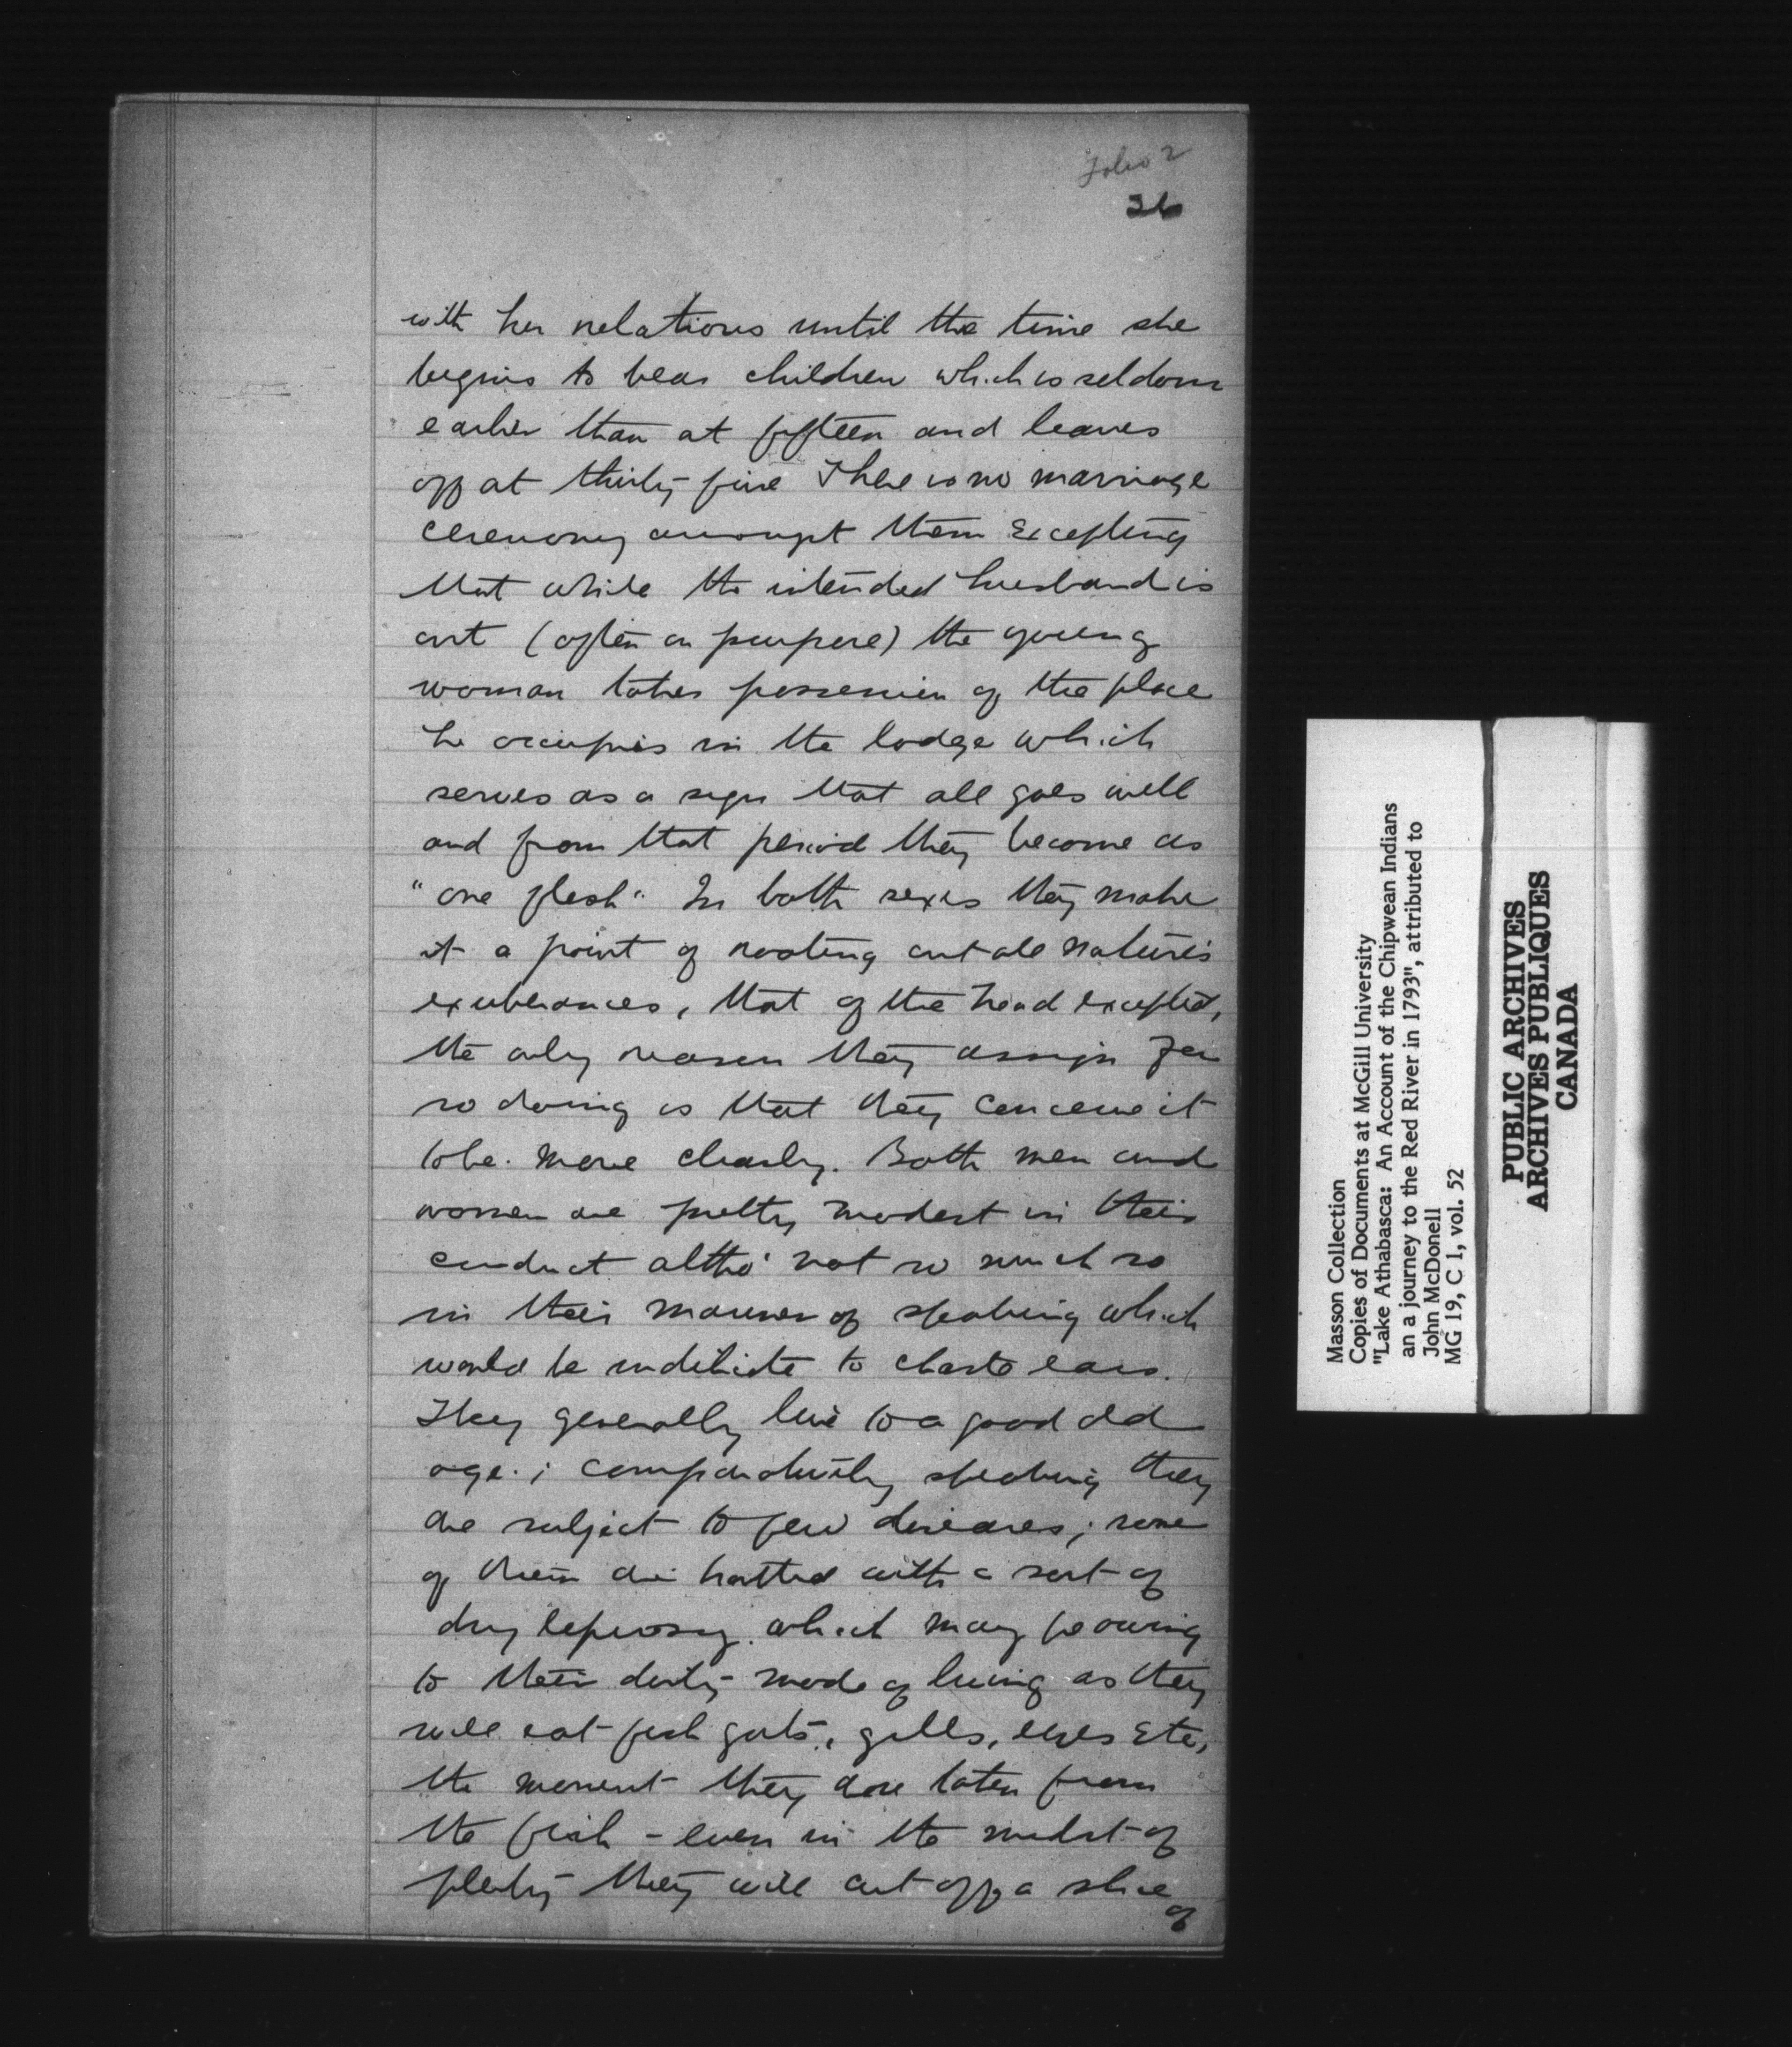 Folio 2
26
with her relations until the time she
begins to bear children which is seldom
earlier than at fifteen and leaves
off at thirty five There is no marriage
ceremony amongst them Excepting
that while the intended husband is
out (often on purpose) the young
woman takes possession of the place
he occupies in the lodge which
serves as a sign that all goes well
and from that period they become as
"one flesh". In both sexes they make
it a point of rooting out all nature's
exuberances, that of the head excepted,
the only reason they assign for
so doing is that they conceive it
to be more cleanly. Both men and
women are pretty modest in their
conduct altho' not so much so
in their manner of speaking which
would be indelicate to chaste ears.
They generally live to a good old
age; comparatively speaking they
are subject to few diseases; some
of them are hatted with a sort of
dry leprosy which may be owing
to their dirty mode of living as they
will eat fish guts, gills, eyes Etc,
the moment they are taken from
the fish - even in the midst of
plenty they will cut off a slice
of
Masson Collection
Copies of Documents at McGill University
"Lake Athabasca: An Account of the Chipwean Indians
an a journey to the Red River in 1793", attributed to
John McDonell
MG 19, C 1, vol. 52
PUBLIC ARCHIVES
ARCHIVES PUBLIQUES
CANADA